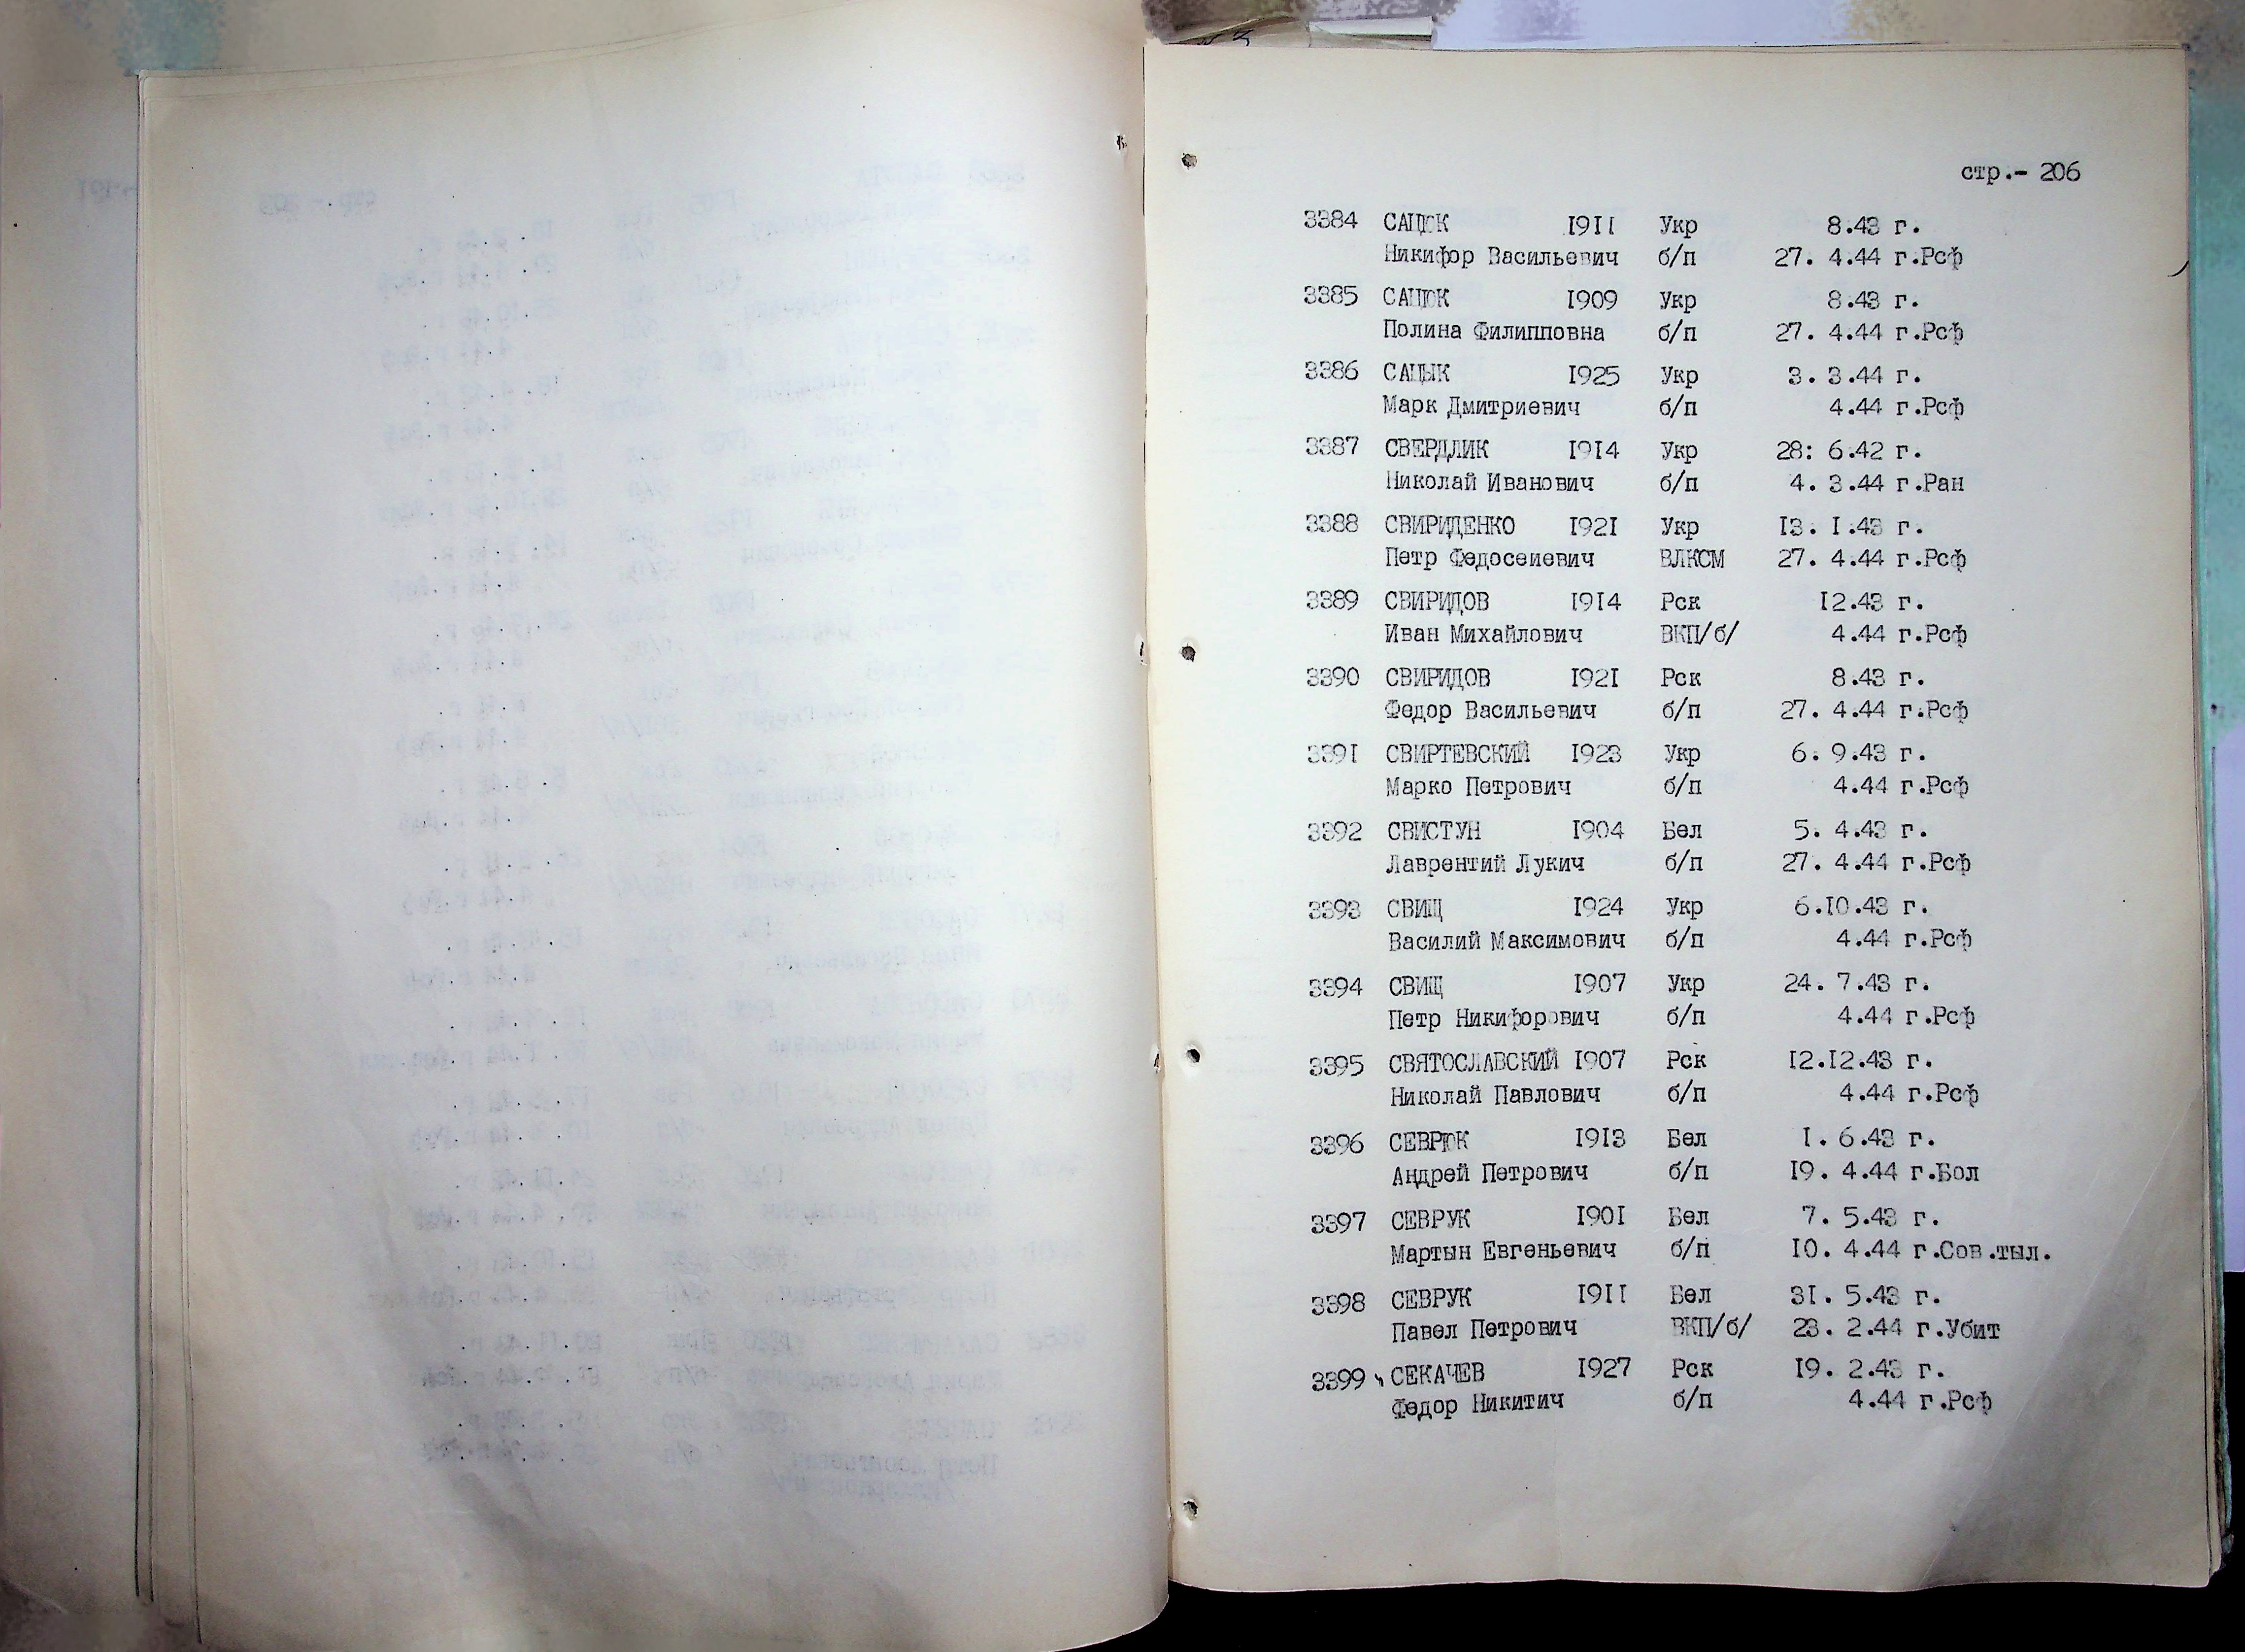 стр.- 206
3384 САЦЮК 1911 Укр 8.43 г.
Никифор Васильевич б/п 27. 4.44 г.Рсф
3385 САЦЮК 1909 Укр 8.43 г.
Полина Филипповна б/п 27. 4.44 г.Рсф
3386 САЦЫК 1925 Укр 3. 3.44 г.
Марк Дмитриевич б/п 4.44 г.Рсф
3387 СВЕРДЛИК 1914 Укр 28: 6.42 г.
Николай Иванович б/п 4. 3.44 г.Ран
3388 СВИРИДЕНКО 1921 Укр 13. 1.43 г.
Петр Федосеиевич ВЛКСМ 27. 4.44 г.Рсф
3389 СВИРИДОВ 1914 Рск 12.43 г.
Иван Михайлович ВКП/б/ 4.44 г.Рсф
3390 СВИРИДОВ 1921 Рск 8.43 г.
Федор Васильевич б/п 27. 4.44 г.Рсф
3391 СВИРТЕВСКИЙ 1923 Укр 6. 9.43 г.
Марко Петрович б/п 4.44 г.Рсф
3392 СВИСТУН 1904 Бел 5. 4.43 г.
Лаврентий Лукич б/п 27. 4.44 г.Рсф
3393 СВИЩ 1924 Укр 6.10.43 г.
Василий Максимович б/п 4.44 г.Рсф
3394 СВИЩ 1907 Укр 24. 7.43 г.
Петр Никифорович б/п 4.44 г.Рсф
3395 СВЯТОСЛАВСКИЙ 1907 Рск 12.12.43 г.
Николай Павлович б/п 4.44 г.Рсф
3396 СЕВРЮК 1913 Бел 1. 6.43 г.
Андрей Петрович б/п 19. 4.44 г.Бол
3397 СЕВРУК 1901 Бел 7. 5.43 г.
Мартын Евгеньевич б/п 10. 4.44 г.Сов.тыл.
3398 СЕВРУК 1911 Бел 31. 5.43 г.
Павел Петрович ВКП/б/ 23. 2.44 г.Убит
3399 СЕКАЧЕВ 1927 Рск 19. 2.43 г.
Федор Никитич б/п 4.44 г.Рсф